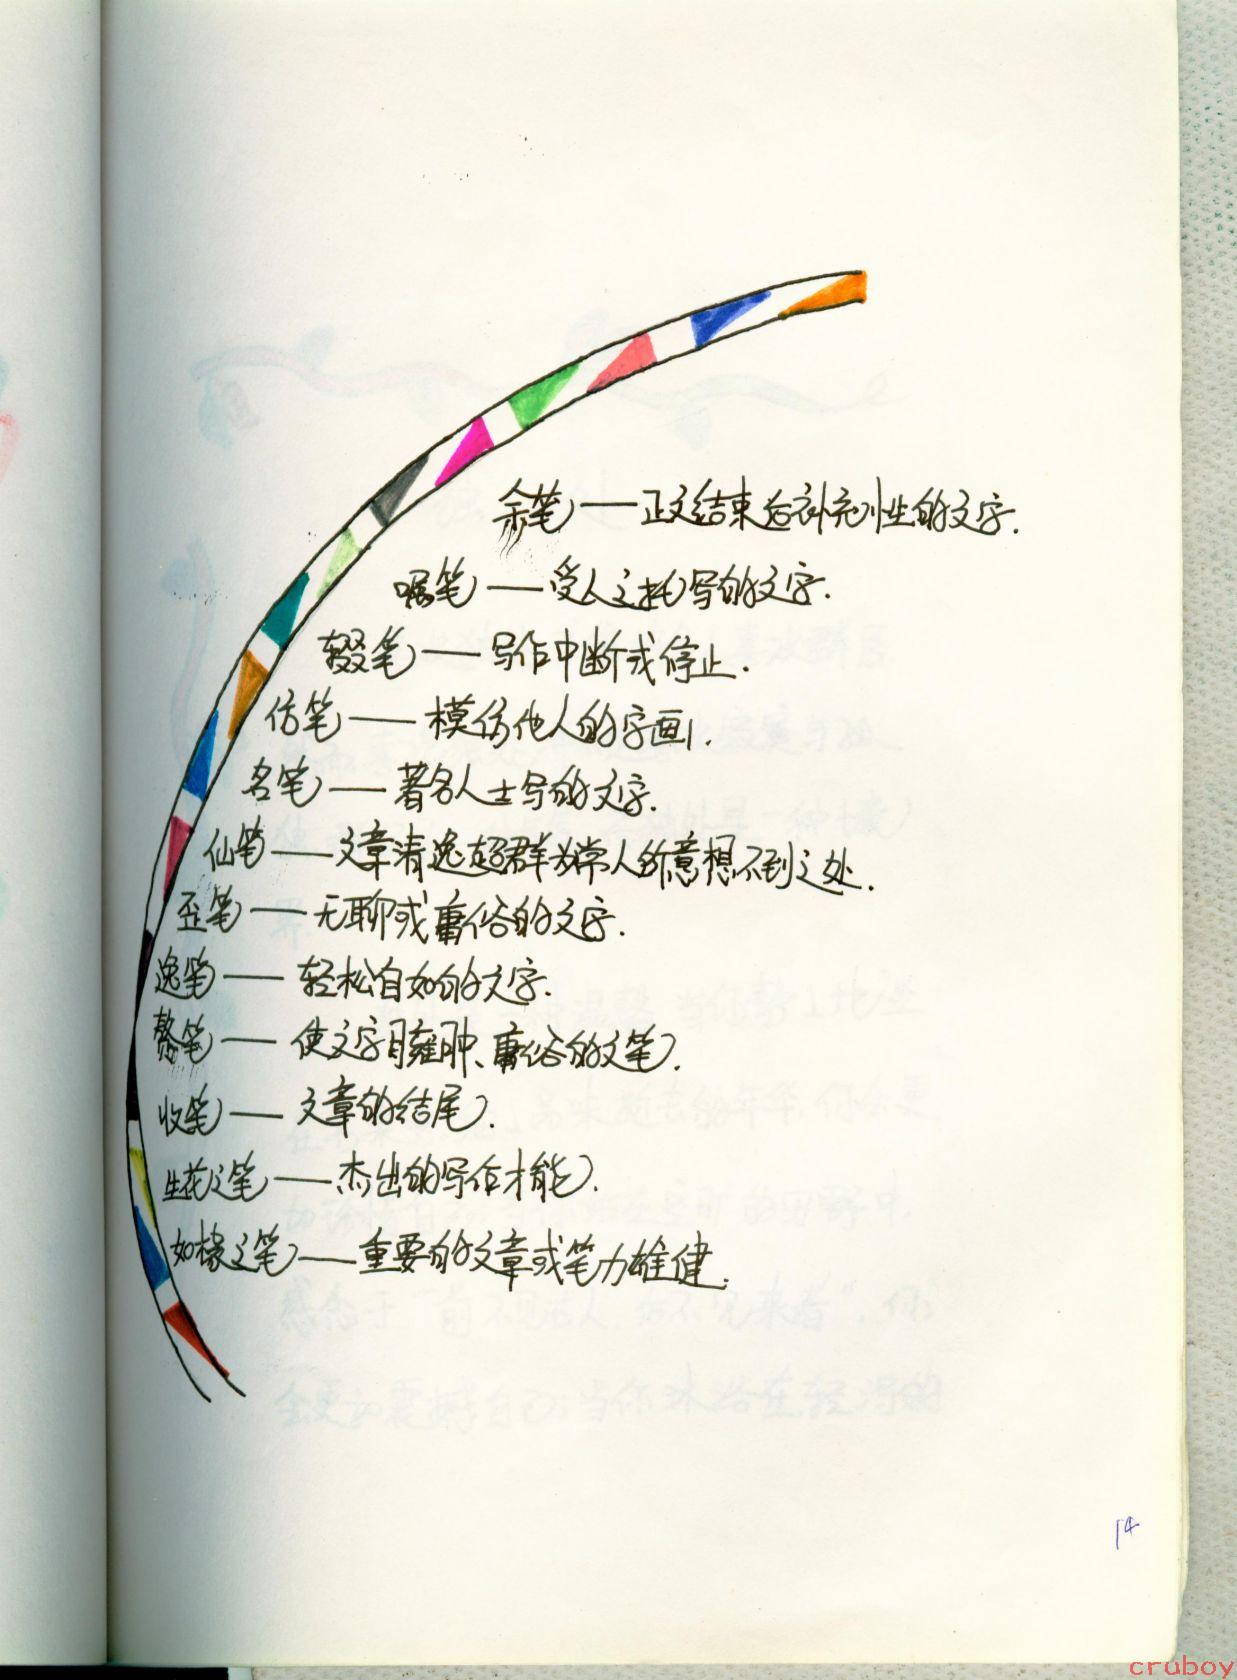 余笔——正文结束后补充性的文字.
嘱笔——受人之托写的文字.
辍笔——写作中断或停止.
仿笔——模仿他人的字画.
名笔——著名人士写的文字.
仙笔——文章清逸超群为常人所意想不到之处.
歪笔——无聊或庸俗的文字.
逸笔——轻松自如的文字.
赘笔——使文字臃肿、庸俗的文笔.
收笔——文章的结尾.
生花之笔——杰出的写作才能.
如椽之笔——重要的文章或笔力雄健.
14
cruboy